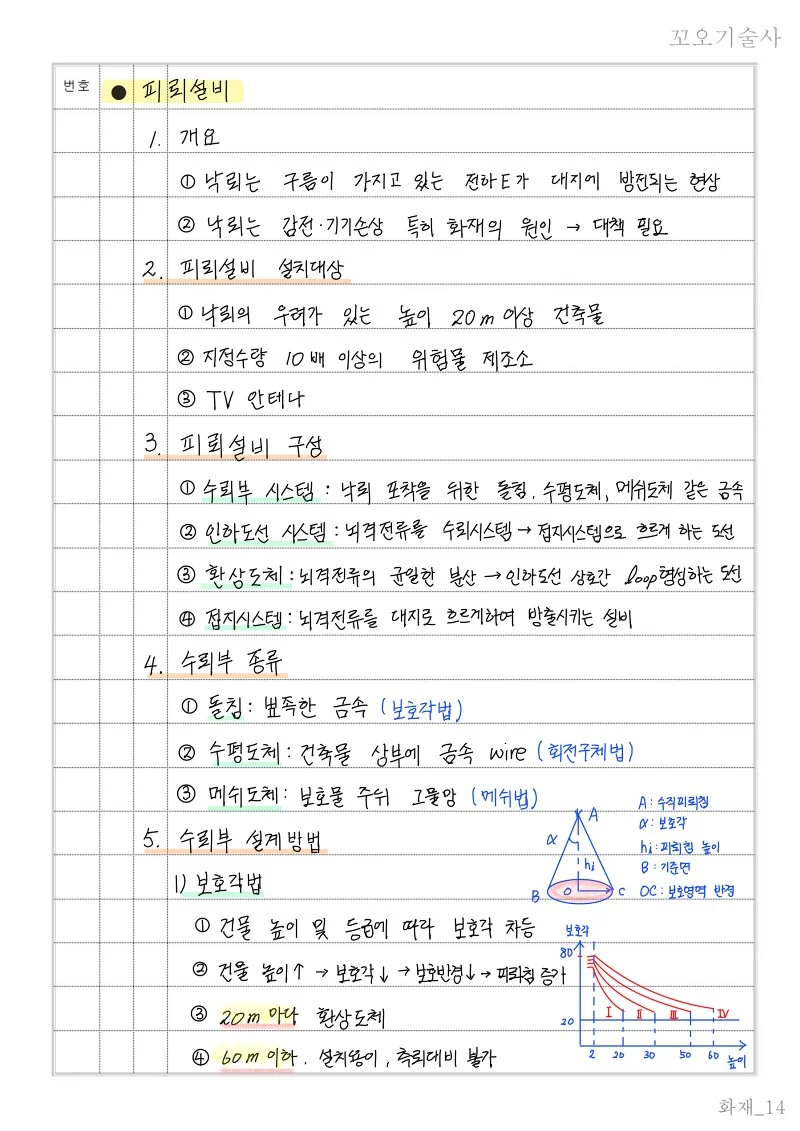 꼬오기술사
번호
● 피뢰설비
1. 개요
① 낙뢰는 구름이 가지고 있는 전하E가 대지에 방전되는 현상
② 낙뢰는 감전·기기손상 특히 화재의 원인 → 대책 필요
2. 피뢰설비 설치대상
① 낙뢰의 우려가 있는 높이 20m 이상 건축물
② 지정수량 10배 이상의 위험물 제조소
③ TV 안테나
3. 피뢰설비 구성
① 수뢰부 시스템 : 낙뢰 포착을 위한 돌침, 수평도체, 메쉬도체 같은 금속
② 인하도선 시스템 : 뇌격전류를 수뢰시스템 → 접지시스템으로 흐르게 하는 도선
③ 환상도체 : 뇌격전류의 균일한 분산 → 인하도선 상호간 loop형성하는 도선
④ 접지시스템 : 뇌격전류를 대지로 흐르게하여 방출시키는 설비
4. 수뢰부 종류
① 돌침 : 뾰족한 금속 (보호각법)
② 수평도체 : 건축물 상부에 금속 wire (회전구체법)
③ 메쉬도체 : 보호물 주위 그물망 (메쉬법)
5. 수뢰부 설계방법
1) 보호각법
① 건물 높이 및 등급에 따라 보호각 차등
② 건물 높이↑ → 보호각↓ → 보호반경↓ → 피뢰침 증가
③ 20m 마다 환상도체
④ 60m 이하. 설치용이, 측뢰대비 불가
A
α
hi
B
O
C
A : 수직피뢰침
α : 보호각
hi : 피뢰침 높이
B : 기준면
OC : 보호영역 반경
보호각
80
20
I II III IV
2 20 30 50 60 높이
화재_14